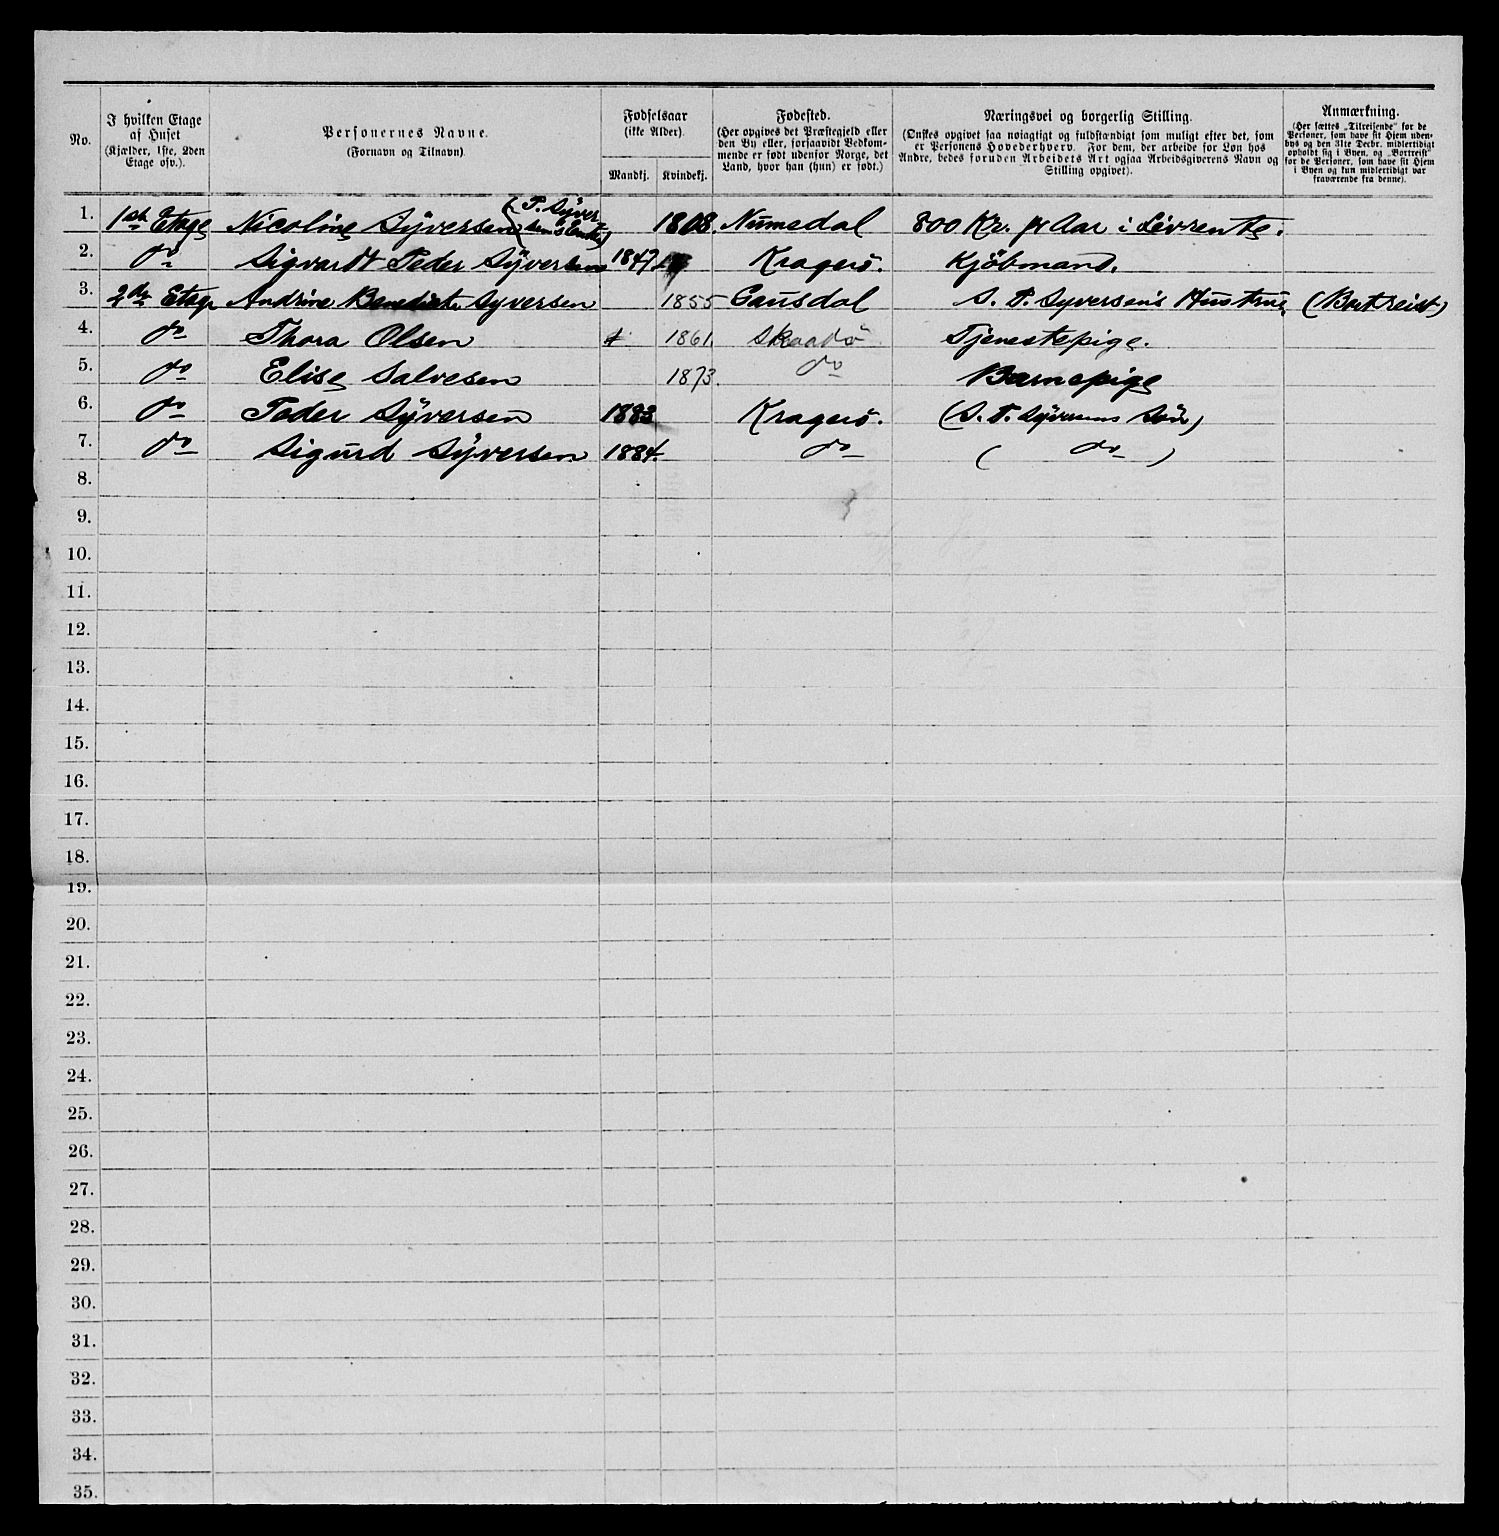 No.
I hvilken Etage af Huset (Kjælder, 1ste, 2den Etage osv.).
Personernes Navne. (Fornavn og Tilnavn).
Fødselsaar (ikke Alder).
Mandkj. Kvindekj.
Fødested. (Her opgives det Præstegjeld eller den By eller, forsaavidt Vedkommende er født udenfor Norge, det Land, hvor han (hun) er født.)
Næringsvei og borgerlig Stilling. (Ønskes opgivet saa nøiagtigt og fuldstændigt som muligt efter det, som er Personens Hovederhverv. For dem, der arbeide for Løn hos Andre, bedes foruden Arbeidets Art ogsaa Arbeidsgiverens Navn og Stilling opgivet).
Anmærkning. (Her sættes „Tilreisende" for de Personer, som have sit Hjem udenbys og den 31te Decbr. midlertidigt opholdt sig i Byen, og „Bortreist" for de Personer, som have sit Hjem i Byen og kun midlertidigt var fraværende fra denne).
1. 1ste Etage Nicoline Syversen (P. Syversens Enke) 1808. Numedal 800 Kr. pr Aar i Livrente.
2. do Sigvardt Peder Syversen 1847 Kragerö. Kjöbmand.
3. 2den Etage Andrine Benedicte Syversen 1855 Gausdal S. P. Syversen's Hustrue, (Bortreist)
4. do Thora Olsen 1861. Skaadö Tjenestepige.
5. do Elise Salvesen 1873. do Barnepige
6. do Peder Syversen 1883 Kragerö. (S. P. Syversens Sön)
7. do Sigurd Syversen 1884. do ( do )
8.
9.
10.
11.
12.
13.
14.
15.
16.
17.
18.
19.
20.
21.
22.
23.
24.
25.
26.
27.
28.
29.
30.
31.
32.
33.
34.
35.